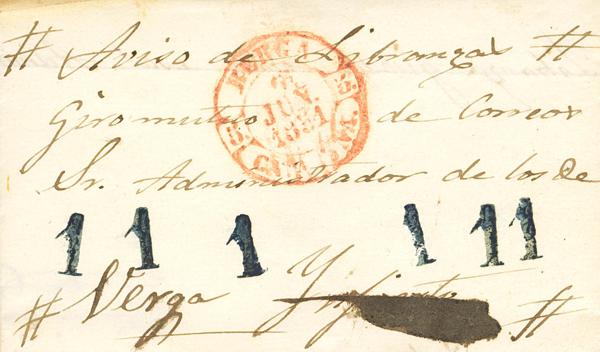 # Aviso de Libranzas #
BERGA
JUN
1851
Giro mutuo de Correos
Sr. Administrador de los De
1 1 1 1 1 1
# Verga #